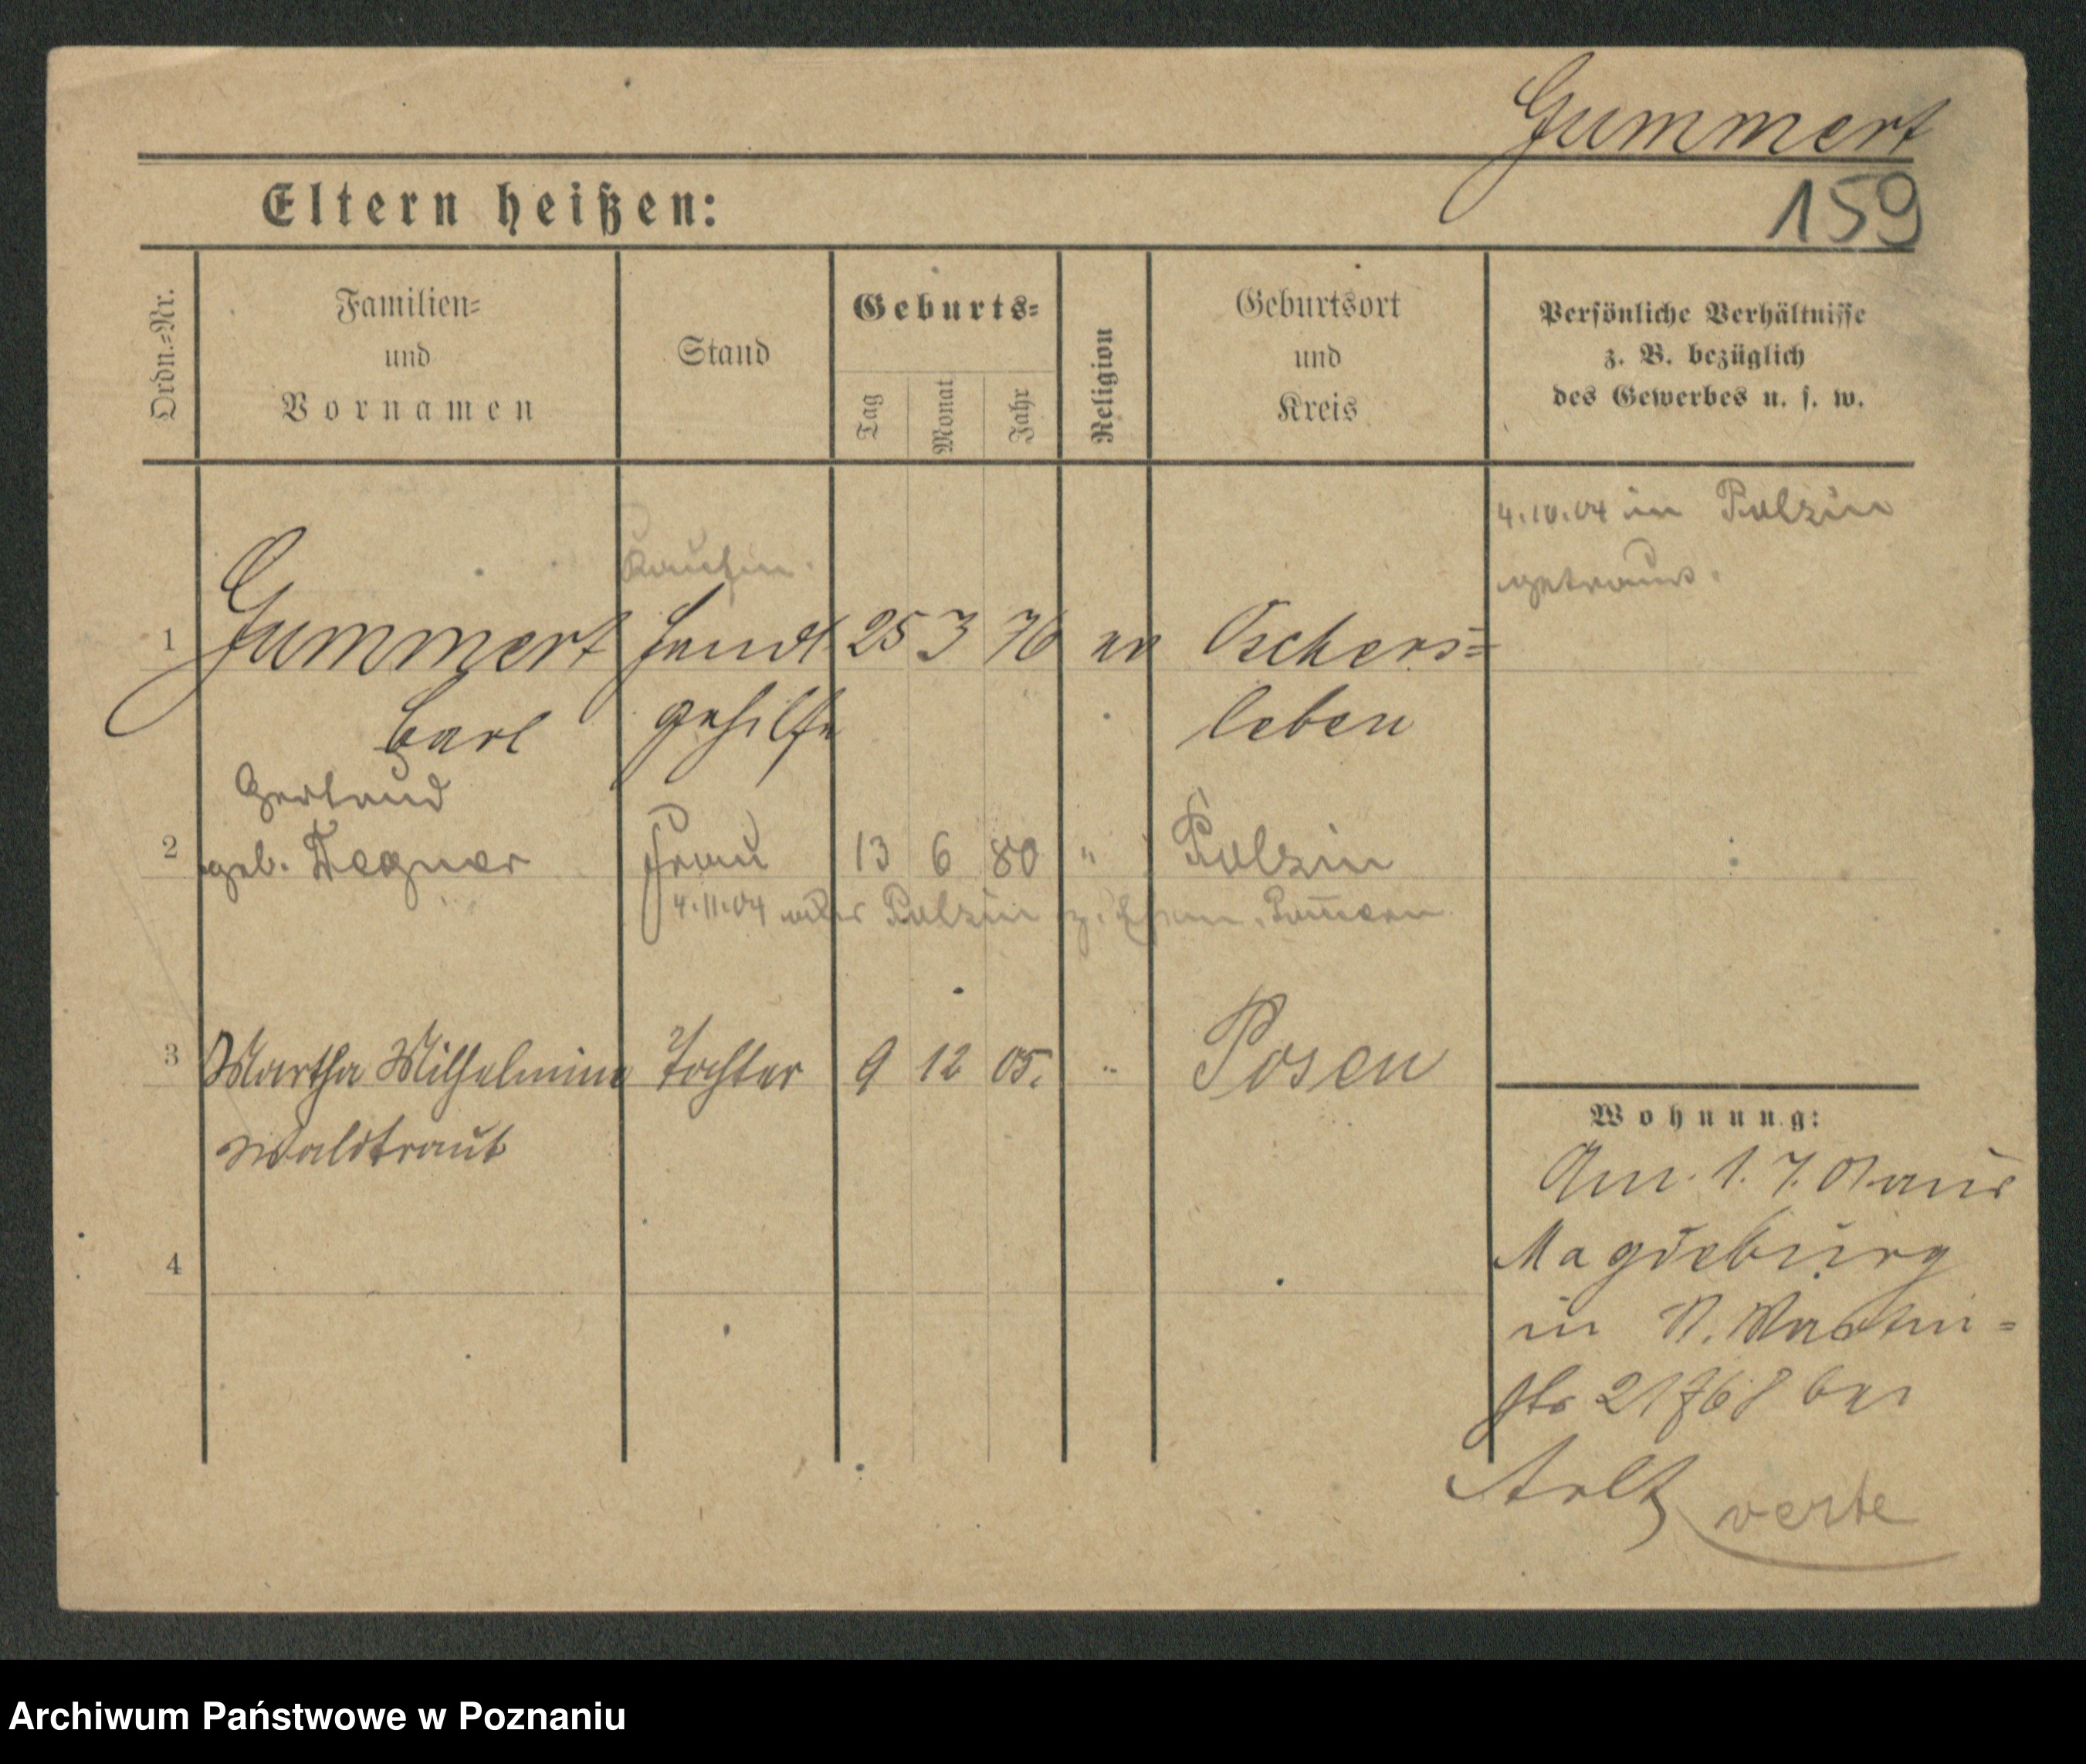 Gummert
159
Eltern heißen:
Ordn.-Nr.
Familien-
und
Vornamen
Stand
Geburts-
Tag
Monat
Jahr
Religion
Geburtsort
und
Kreis
Persönliche Verhältnisse
z. B. bezüglich
des Gewerbes u. s. w.
4.10.04 in Polzin
getraut.
Kaufm.
1 Gummert Handl 25 3 76 ev Oschers=
Carl gehilfe leben
Gertrud
2 geb. Degner Frau 13 6 80 " Polzin
4.11.04 Polzin z. Pommern
3 Martha Wilhelmine Tochter 9 12 05. " Posen
Waldtraut
4
Wohnung:
An. 1. 7. 01 aus
Magdeburg
in N. Martin=
str 21 bei
Arlt verte
Archiwum Państwowe w Poznaniu